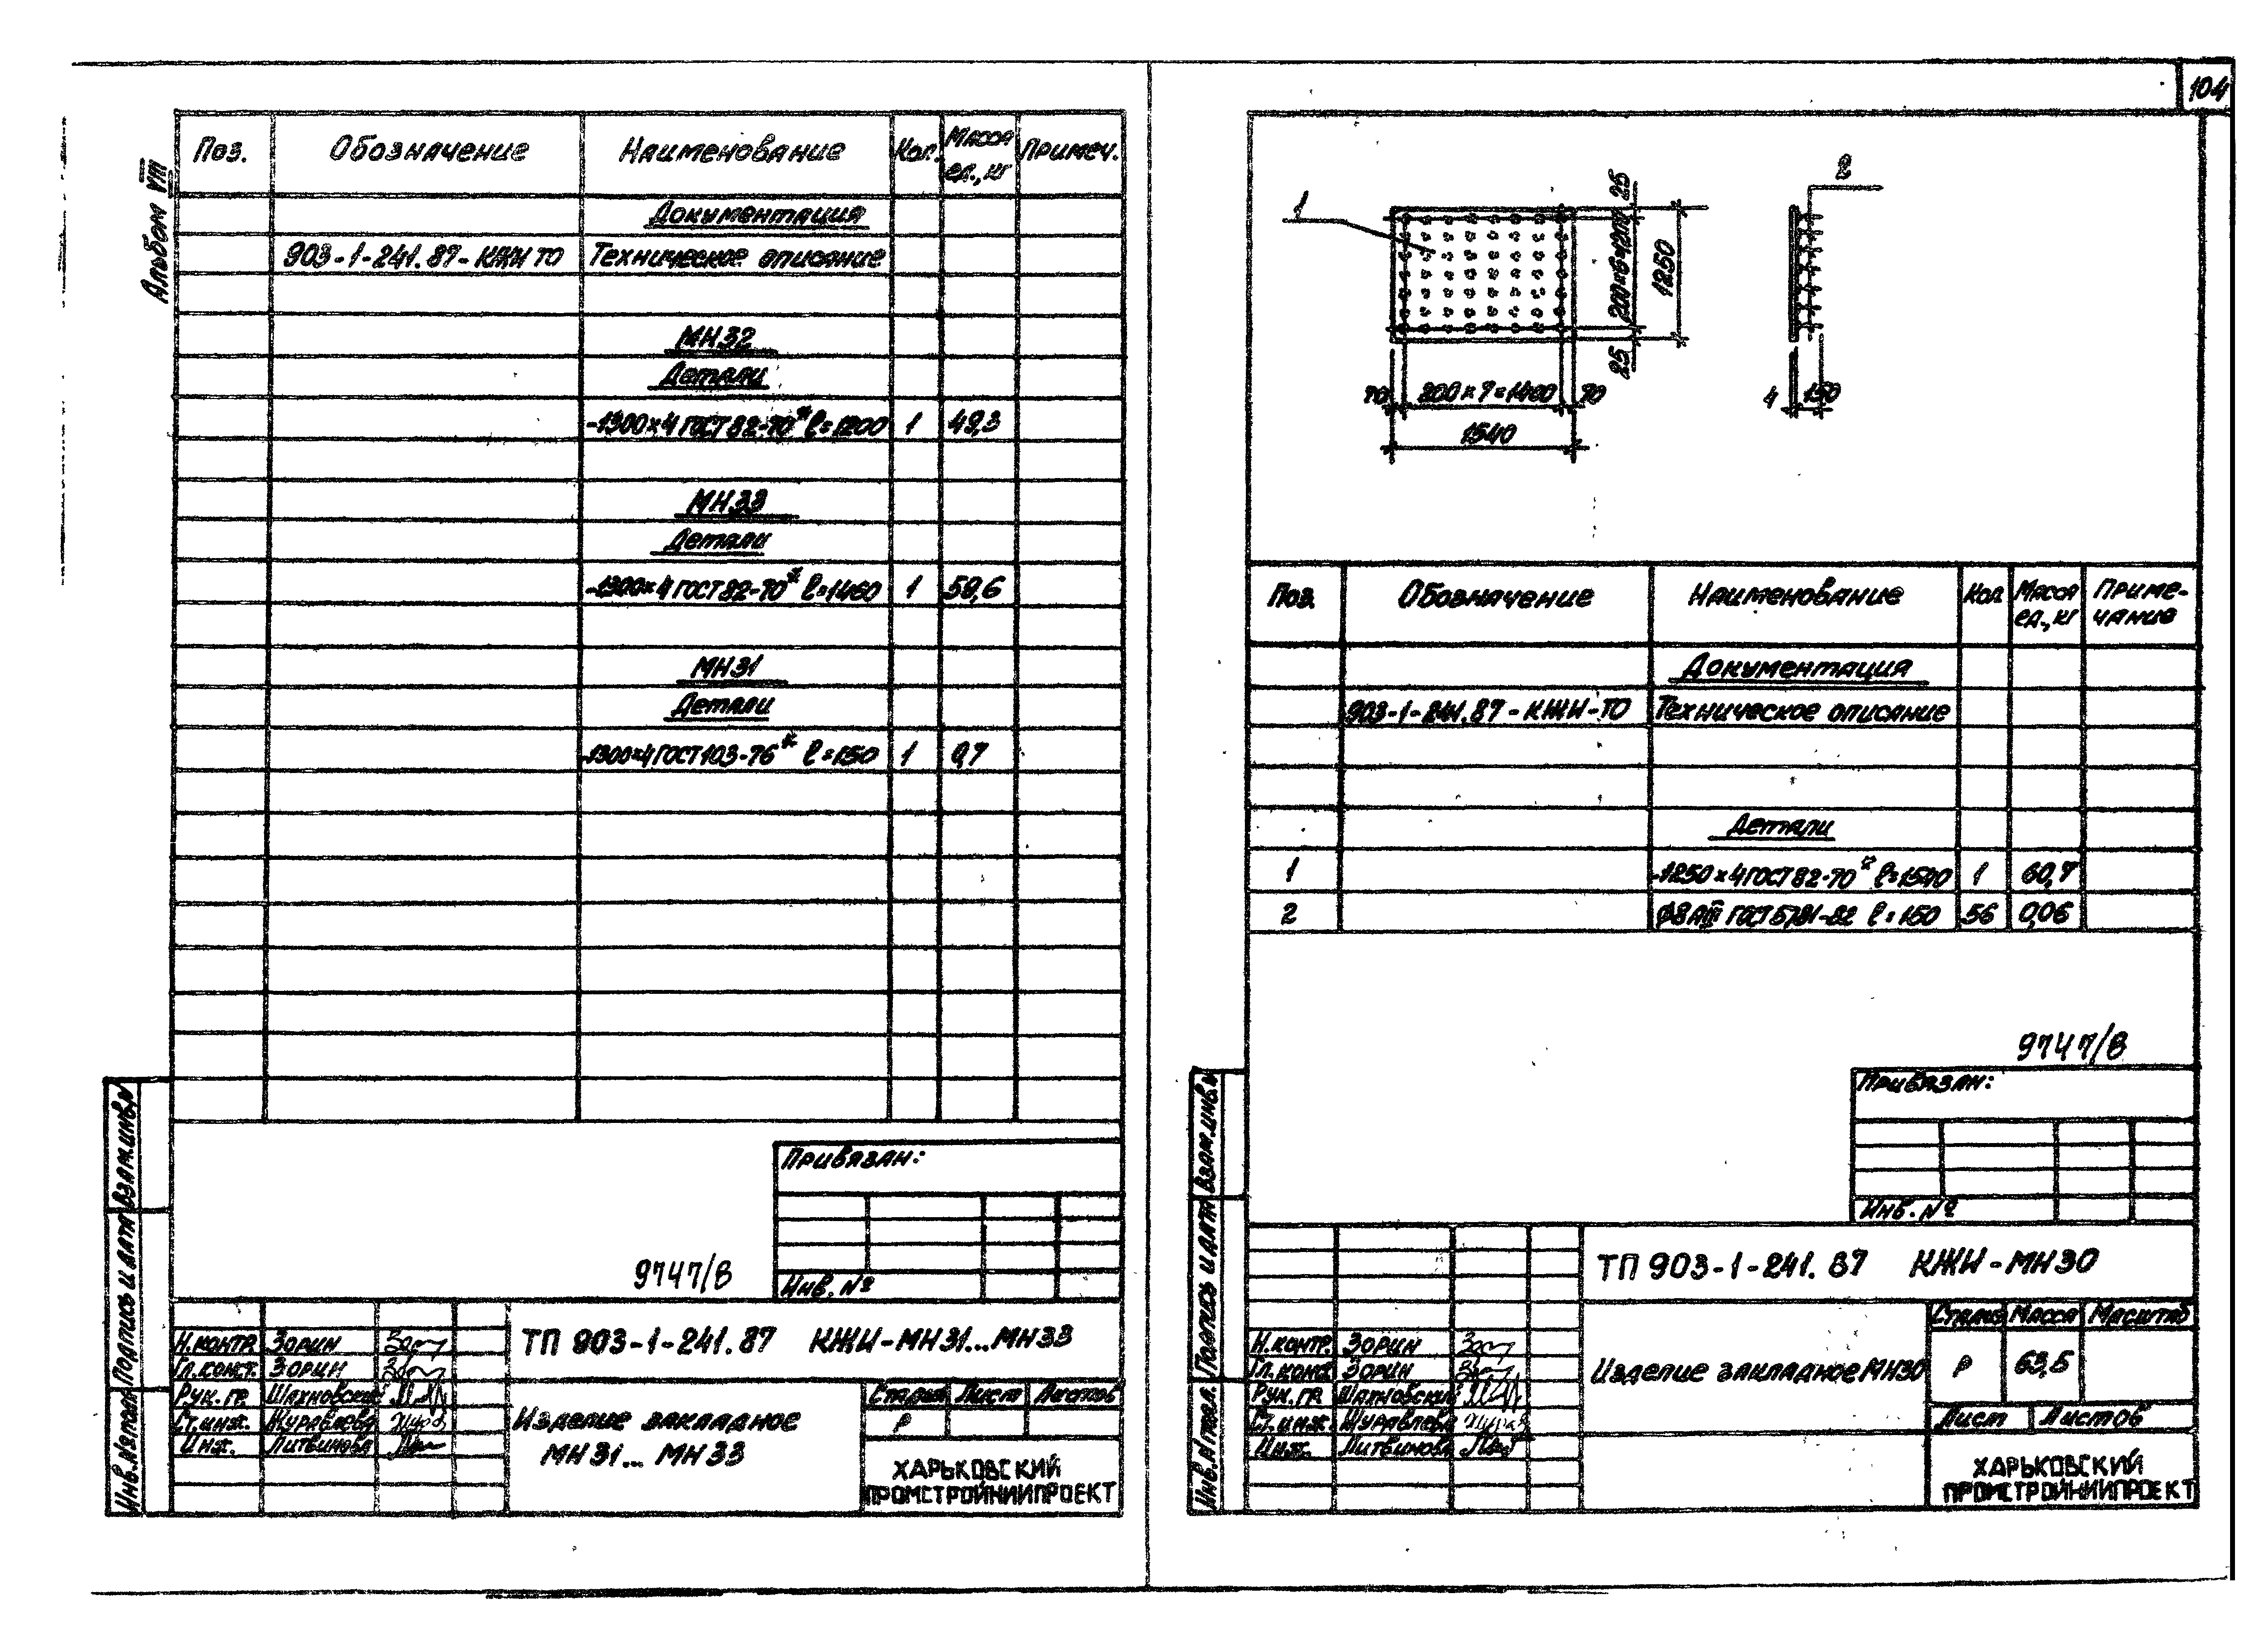 104
Альбом VIII
Поз. Обозначение Наименование Кол. Масса ед., кг Примеч.
Документация
903-1-241.87-КЖИ ТО Техническое описание
МН32
Детали
-1300×4 ГОСТ 82-70* ℓ=1200 1 49,3
МН33
Детали
-1300×4 ГОСТ 82-70* ℓ=1460 1 59,6
МН31
Детали
-1300×4 ГОСТ 103-76* ℓ=150 1 0,7
Привязан:
Инв. №
9747/8
Взам.инв.№
Подпись и дата
Инв.№ подл.
Н.контр. Зорин
Гл.конст. Зорин
Рук. гр. Шахновский
Ст.инж. Журавлева
Инж. Литвинова
ТП 903-1-241.87 КЖИ-МН31...МН33
Изделие закладное
МН31... МН33
Стадия Лист Листов
Р
ХАРЬКОВСКИЙ
ПРОМСТРОЙНИИПРОЕКТ
1
2
25
200×6=1200
25
1250
70 200×7=1400 70
1540
4 150
Поз. Обозначение Наименование Кол. Масса ед., кг Примечание
Документация
903-1-241.87-КЖИ-ТО Техническое описание
Детали
1 -1250×4 ГОСТ 82-70* ℓ=1540 1 60,7
2 Ø8 АIII ГОСТ 5781-82 ℓ=150 56 0,06
9747/8
Привязан:
Инв. №
Взам.инв.№
Подпись и дата
Инв.№ подл.
ТП 903-1-241.87 КЖИ-МН30
Н.контр. Зорин
Гл.конст. Зорин
Рук. гр. Шахновский
Ст.инж. Журавлева
Инж. Литвинова
Изделие закладное МН30
Стадия Масса Масштаб
Р 63,5
Лист Листов
ХАРЬКОВСКИЙ
ПРОМСТРОЙНИИПРОЕКТ